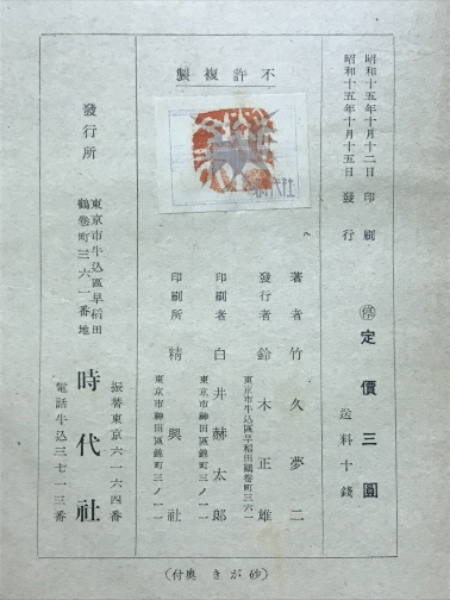 昭和十五年十月十二日 印刷
昭和十五年十月十五日 發行
㊡定價三圓
送料十錢
不許複製
著者 竹久夢二
發行者 鈴木正雄
東京市牛込區早稻田鶴卷町三六一
印刷者 白井赫太郎
東京市神田區錦町三ノ一一
印刷所 精興社
東京市神田區錦町三ノ一一
發行所
東京市牛込區早稻田
鶴卷町三六一番地
時代社
振替東京六一六四番
電話牛込三七一三番
(砂がき 奥付)